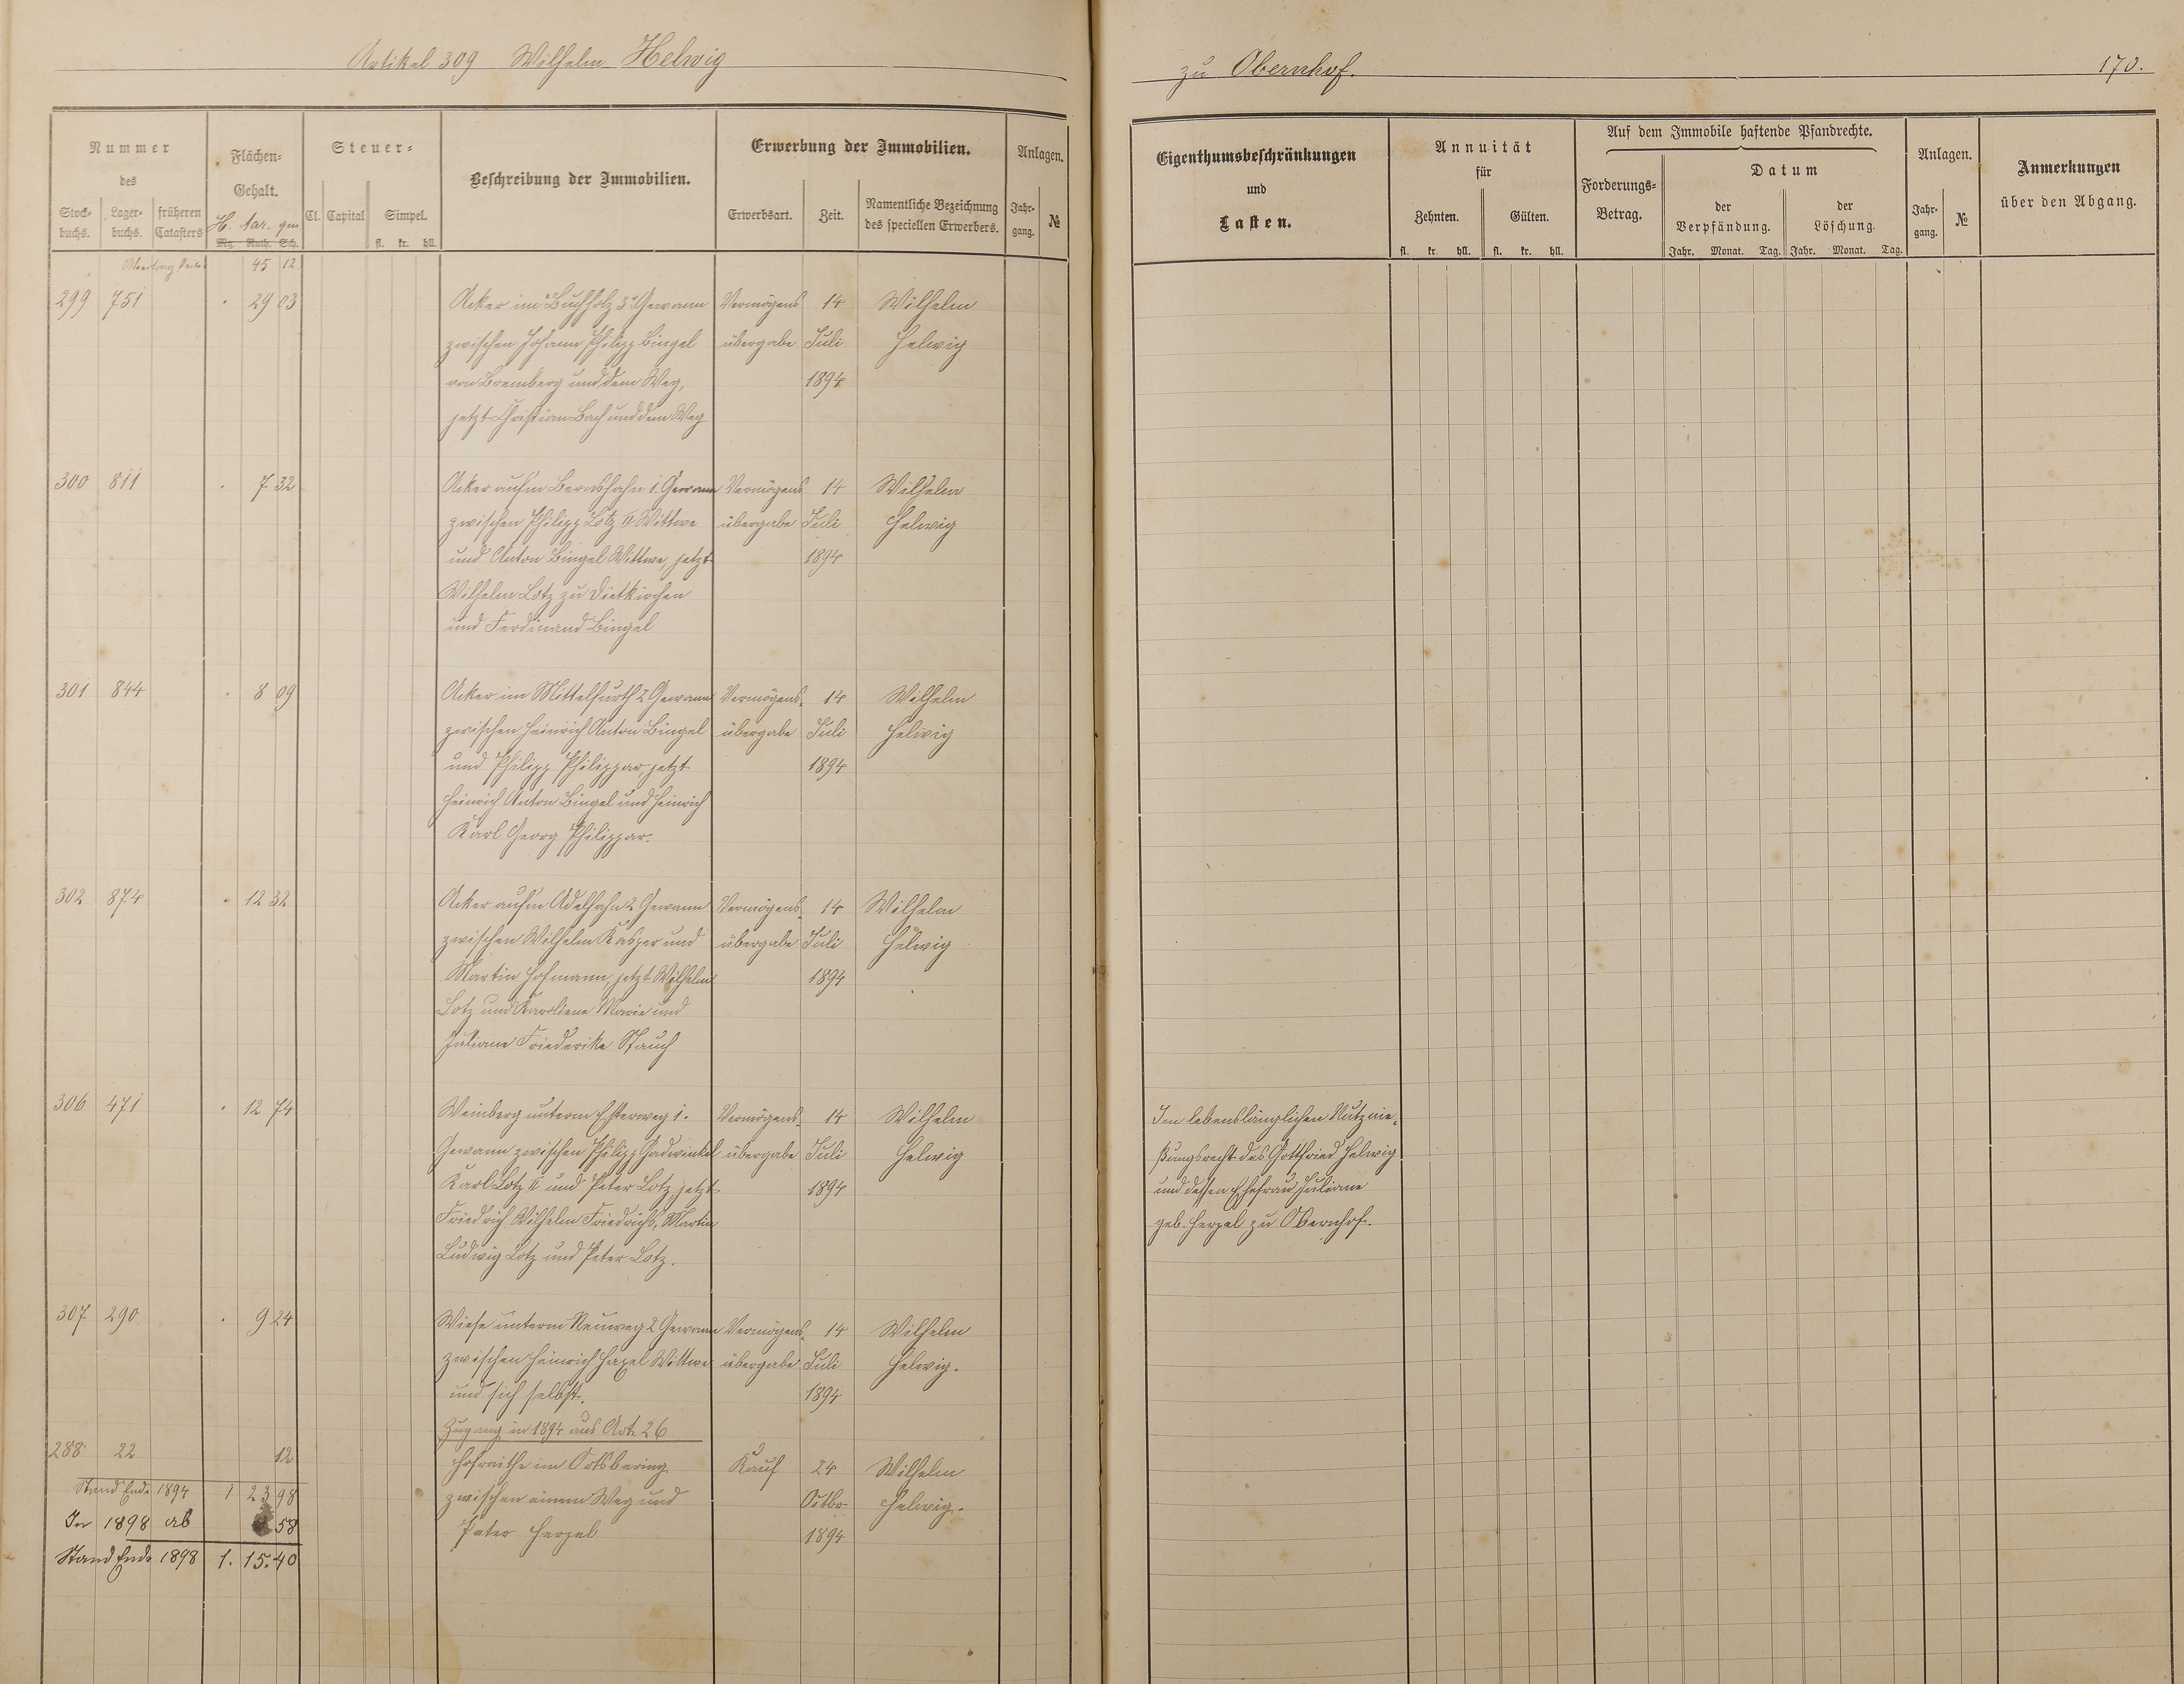 Artikel 309 Wilhelm Helwig
zu Obernhof.
170.
Nummer
des
Stock-
buchs.
Lager-
buchs.
früheren
Catasters
Flächen-
Gehalt.
H. Ar. qm
Mg. Ruth. Sch.
Steuer-
Cl. Capital Simpel.
fl. kr. hll.
Beschreibung der Immobilien.
Erwerbung der Immobilien.
Erwerbsart. Zeit.
Namentliche Bezeichnung
des speciellen Erwerbers.
Anlagen.
Jahr-
gang.
№
Eigenthumsbeschränkungen
und
Lasten.
Annuität
für
Zehnten. Gülten.
fl. kr. hll. fl. kr. hll.
Auf dem Immobile haftende Pfandrechte.
Forderungs-
Betrag.
Datum
der
Verpfändung.
der
Löschung.
Jahr. Monat. Tag. Jahr. Monat. Tag.
Anlagen.
Jahr-
gang.
№
Anmerkungen
über den Abgang.
Uebertrag 45 12
299 751 29 03 Acker im Buchholz 3. Gewann Vermögens 14 Wilhelm
zwischen Johann Philipp Bingel übergabe Juli Helwig
von Bremberg und dem Weg, 1894
jetzt Christian Bach und dem Weg
300 811 7 32 Acker aufm Bernshahn 1. Gewann Vermögens 14 Wilhelm
zwischen Philipp Lotz II Wittwe übergabe Juli Helwig
und Anton Bingel Wittwe, jetzt 1894
Wilhelm Lotz zu Dietkirchen
und Ferdinand Bingel
301 844 8 09 Acker im Mittelfurth 2 Gewann Vermögens- 14 Wilhelm
zwischen Heinrich Anton Bingel übergabe Juli Helwig
und Philipp Philippar, jetzt 1894
Heinrich Anton Bingel und Heinrich
Karl Georg Philippar.
302 874 12 32 Acker aufm Adelhahn 2 Gewann Vermögens- 14 Wilhelm
zwischen Wilhelm Kasper und übergabe Juli Helwig
Martin Hofmann, jetzt Wilhelm 1894
Lotz und Karoline Marie und
Juliane Friederike Stauch
306 471 12 74 Weinberg unterm 1. Vermögens- 14 Wilhelm
Gewann zwischen Philipp übergabe Juli Helwig
Karl Lotz II und Peter Lotz, jetzt 1894
Friedrich Wilhelm Friedrichs, Martin
Ludwig Lotz und Peter Lotz.
Im lebenslänglichen Nutznie-
ßungsrecht des Gottfried Helwig
und dessen Ehefrau Juliane
geb. Herpel zu Obernhof.
307 290 9 24 Wiese unterm Neuweg 2 Gewann Vermögens- 14 Wilhelm
zwischen Heinrich Wittwe übergabe Juli Helwig.
und sich selbst. 1894
Zugang in 1894 aus Art. 26
288 22 12 Hofreithe im Ortsbering Kauf 24 Wilhelm
zwischen einem Weg und Octbr. Helwig.
Peter Herpel 1894
Stand Ende 1894 1 23 98
In 1898 ab 58
Stand Ende 1898 1. 15. 40